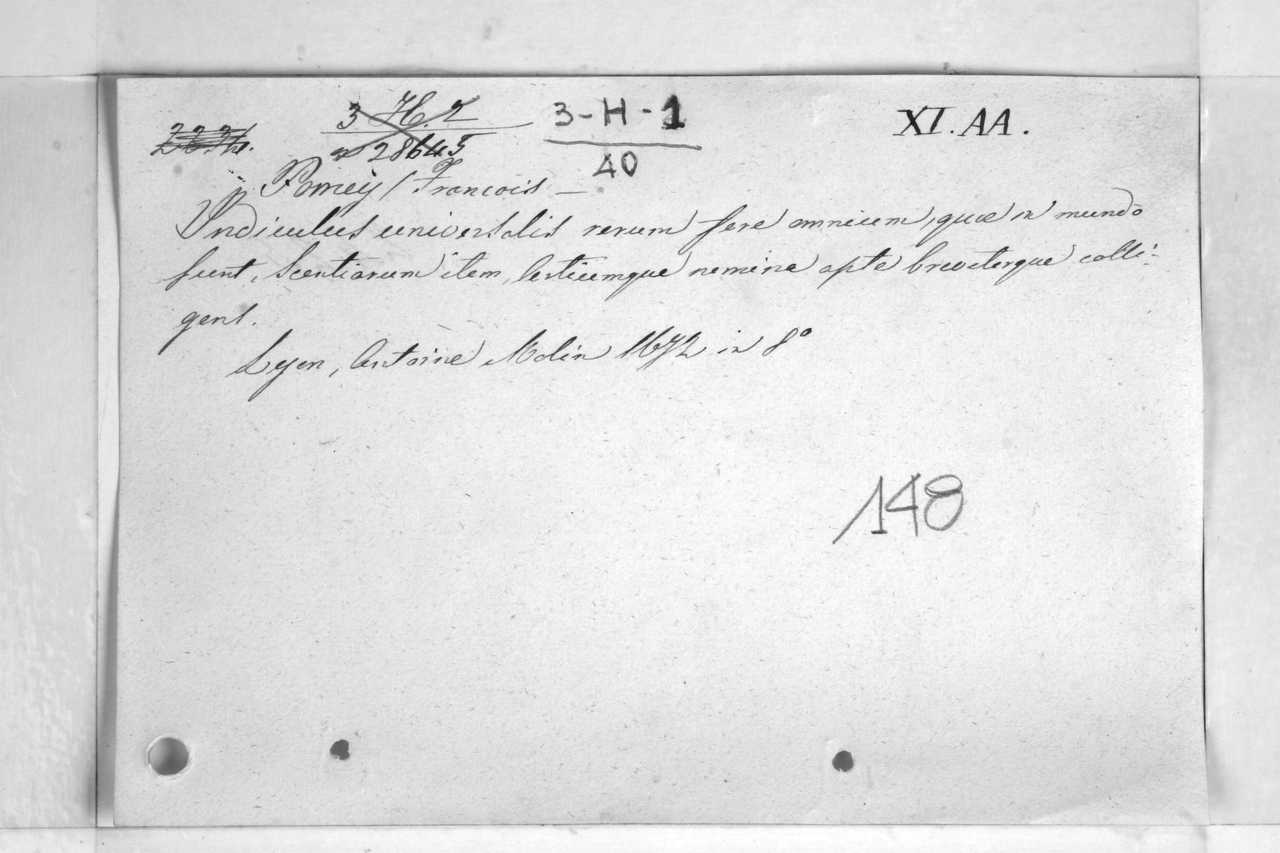 3 H. 2 3-H-1 XI. AA.
nº 28645 40
Pomey / François —
Indiculus universalis rerum fere omnium, quæ in mundo
sunt, Scentiarum item, Artiumque nomina apte breviterque colli-
gens.
Lyon, Antoine Molin 1672 in 8º
148